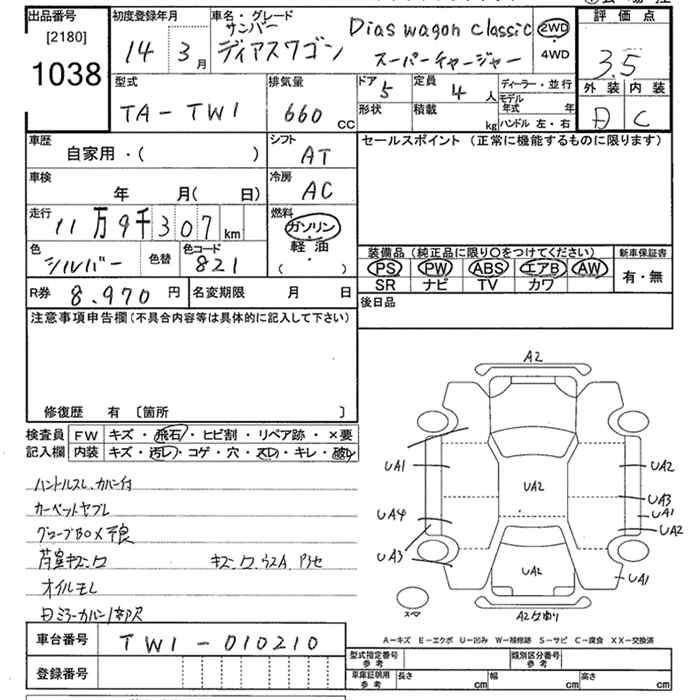 出品番号
[2180]
1038
初度登録年月
14 3月
車名・グレード
サンバー
ディアスワゴン
Dias wagon classic
スーパーチャージャー
2WD
・
4WD
評価点
3.5
外装 内装
D C
型式
TA-TW1
排気量
660 cc
ドア 5
定員 4人
形状
積載 kg
ディーラー・並行
モデル年式 年
ハンドル 左・右
車歴
自家用・( )
シフト
AT
セールスポイント (正常に機能するものに限ります)
車検
年 月( 日)
冷房
AC
走行
11万9千307km
燃料
ガソリン
・
軽油
( )
色
シルバー
色替
色コード
821
装備品 (純正品に限り○をつけてください)
新車保証書
PS PW ABS エアB AW
SR ナビ TV カワ
有・無
R券 8.970円
名変期限 月 日
後日品
注意事項申告欄 (不具合内容等は具体的に記入して下さい)
修復歴 有 〔箇所 〕
検査員 FW キズ・飛石・ヒビ割・リペア跡・×要
記入欄 内装 キズ・汚レ・コゲ・穴・スレ・キレ・破レ
ハンドルスレ、カバー付
カーペットヤブレ
グローブBOX不良
オイルモレ
A2
UA1
UA2
UA2
UA4
UA3
UA1
UA2
UA3
UA2
UA1
スペア
A-キズ E-エクボ U-凹み W-補修跡 S-サビ C-腐食 XX-交換済
車台番号 TW1-010210
登録番号
型式指定番号 参考
類別区分番号 参考
車庫証明用 参考
長さ cm
幅 cm
高さ cm